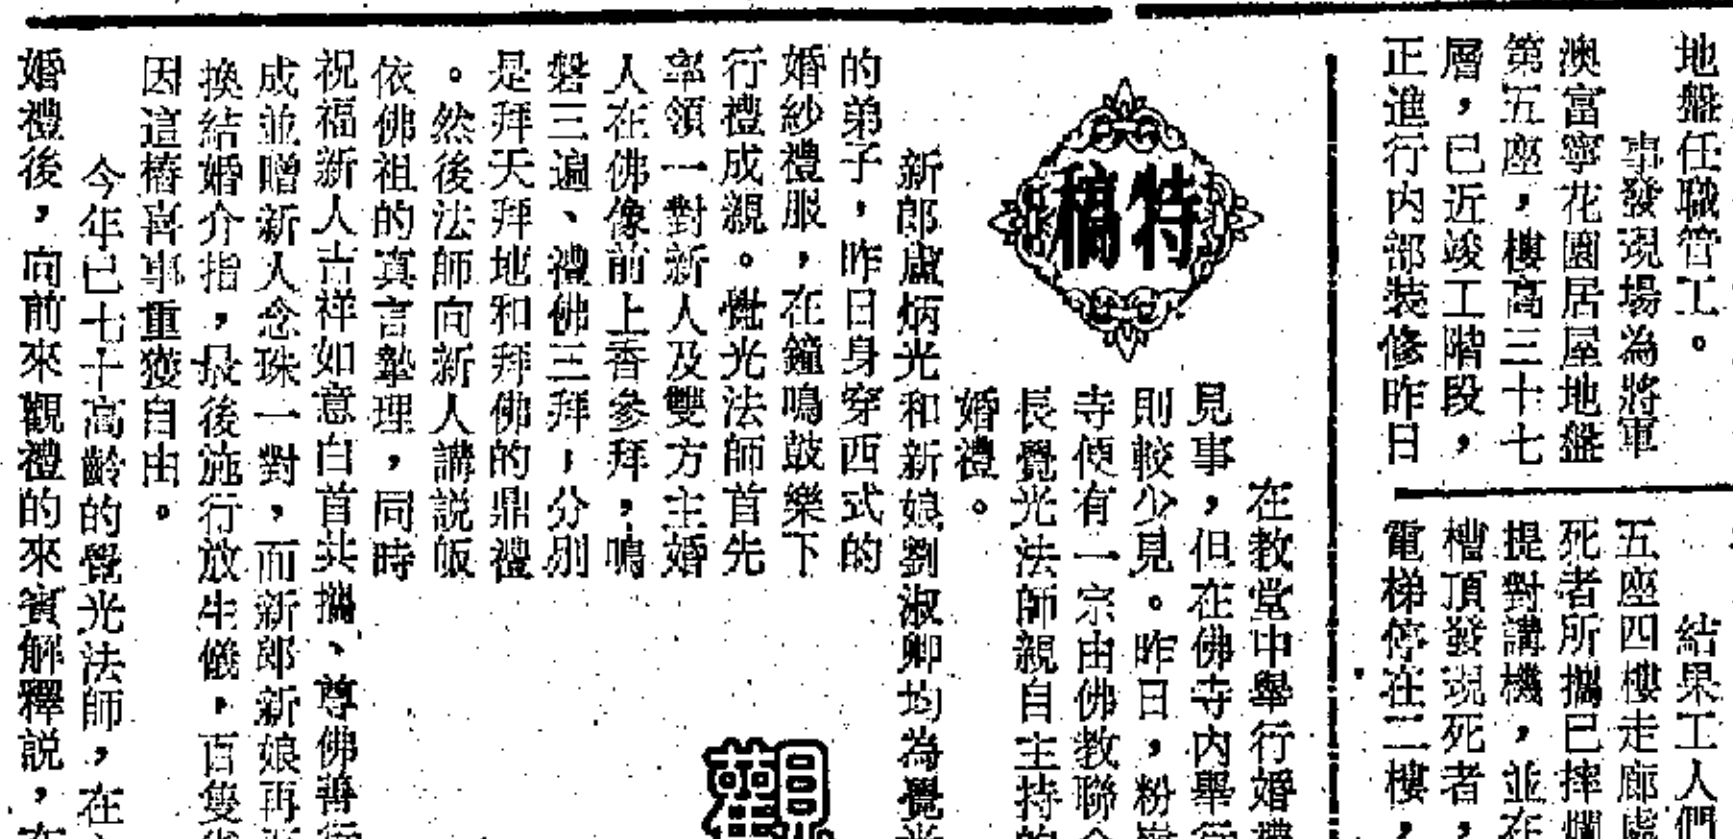 地盤任職管工。
事發現場為將軍
澳富寧花園居屋地盤
第五座，樓高三十七
層，已近竣工階段，
正進行內部裝修昨日
結果工人們
五座四樓走廊處
死者所攜已摔爛
提對講機，並在
槽頂發現死者，
電梯停在二樓，
特稿
在教堂中舉行婚禮
見事，但在佛寺內舉行
則較少見。昨日，粉嶺
寺便有一宗由佛教聯合
長覺光法師親自主持的
婚禮。
新郎盧炳光和新娘劉淑卿均為覺光
的弟子，昨日身穿西式的
婚紗禮服，在鐘鳴鼓樂下
行禮成親。覺光法師首先
率領一對新人及雙方主婚
人在佛像前上香參拜，鳴
磐三遍、禮佛三拜，分別
是拜天拜地和拜佛的鼎禮
。然後法師向新人講説皈
依佛祖的真言摯理，同時
祝福新人吉祥如意白首共攜、尊佛善行
成並贈新人念珠一對，而新郎新娘再
換結婚介指，最後施行放生儀，百隻
因這樁喜事重獲自由。
今年已七十高齡的覺光法師，在
婚禮後，向前來觀禮的來賓解釋説，在